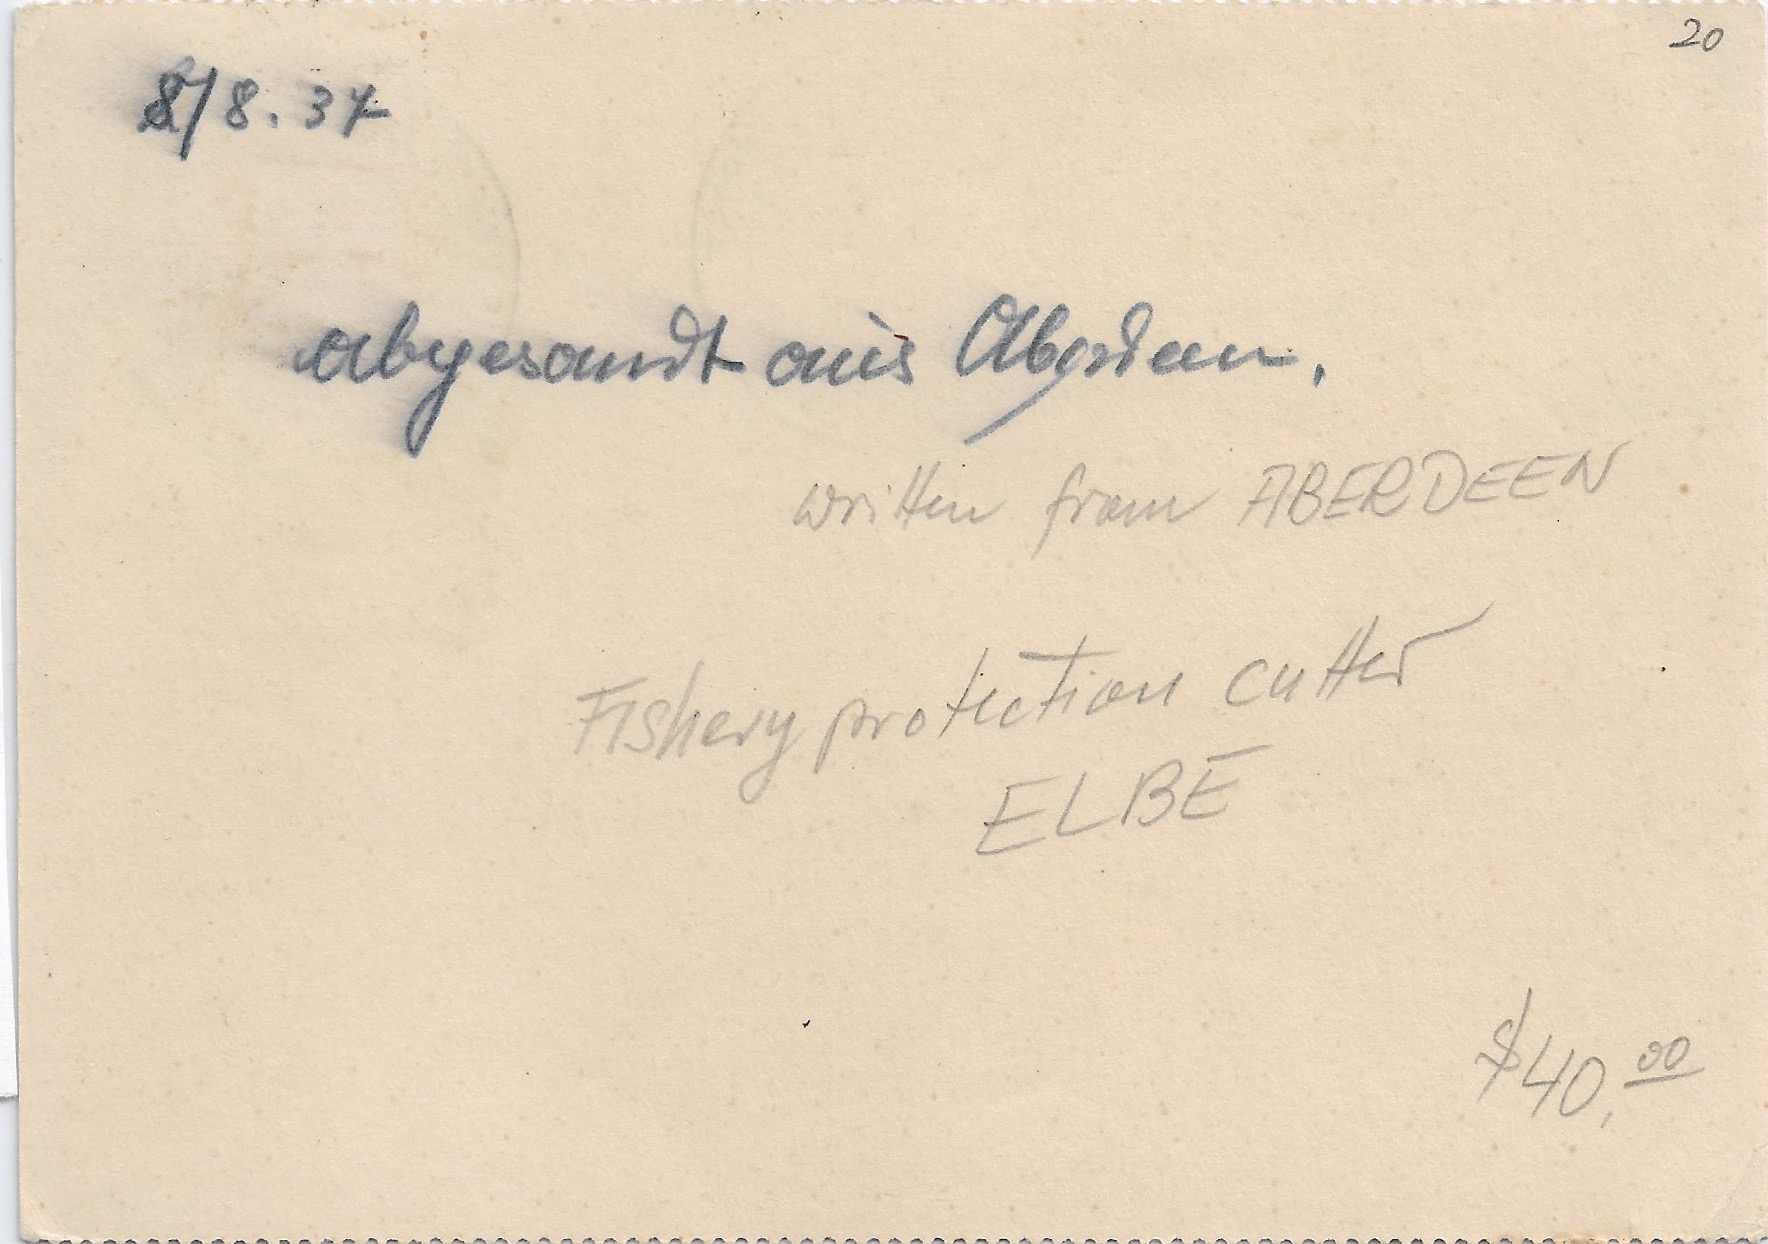 20
8/8.37
abgesandt aus Aberdeen.
written from ABERDEEN
Fishery protection cutter
ELBE
$40,00